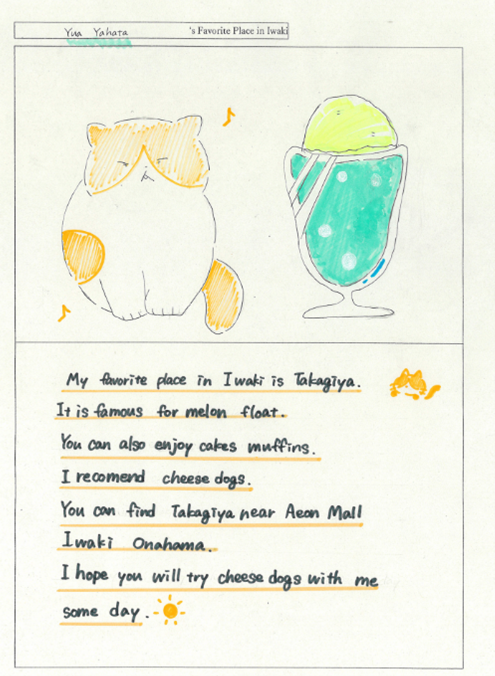 Yua Yahata 's Favorite Place in Iwaki
My favorite place in Iwaki is Takagiya.
It is famous for melon float.
You can also enjoy cakes muffins.
I recomend cheese dogs.
You can find Takagiya near Aeon Mall
Iwaki Onahama.
I hope you will try cheese dogs with me
some day.